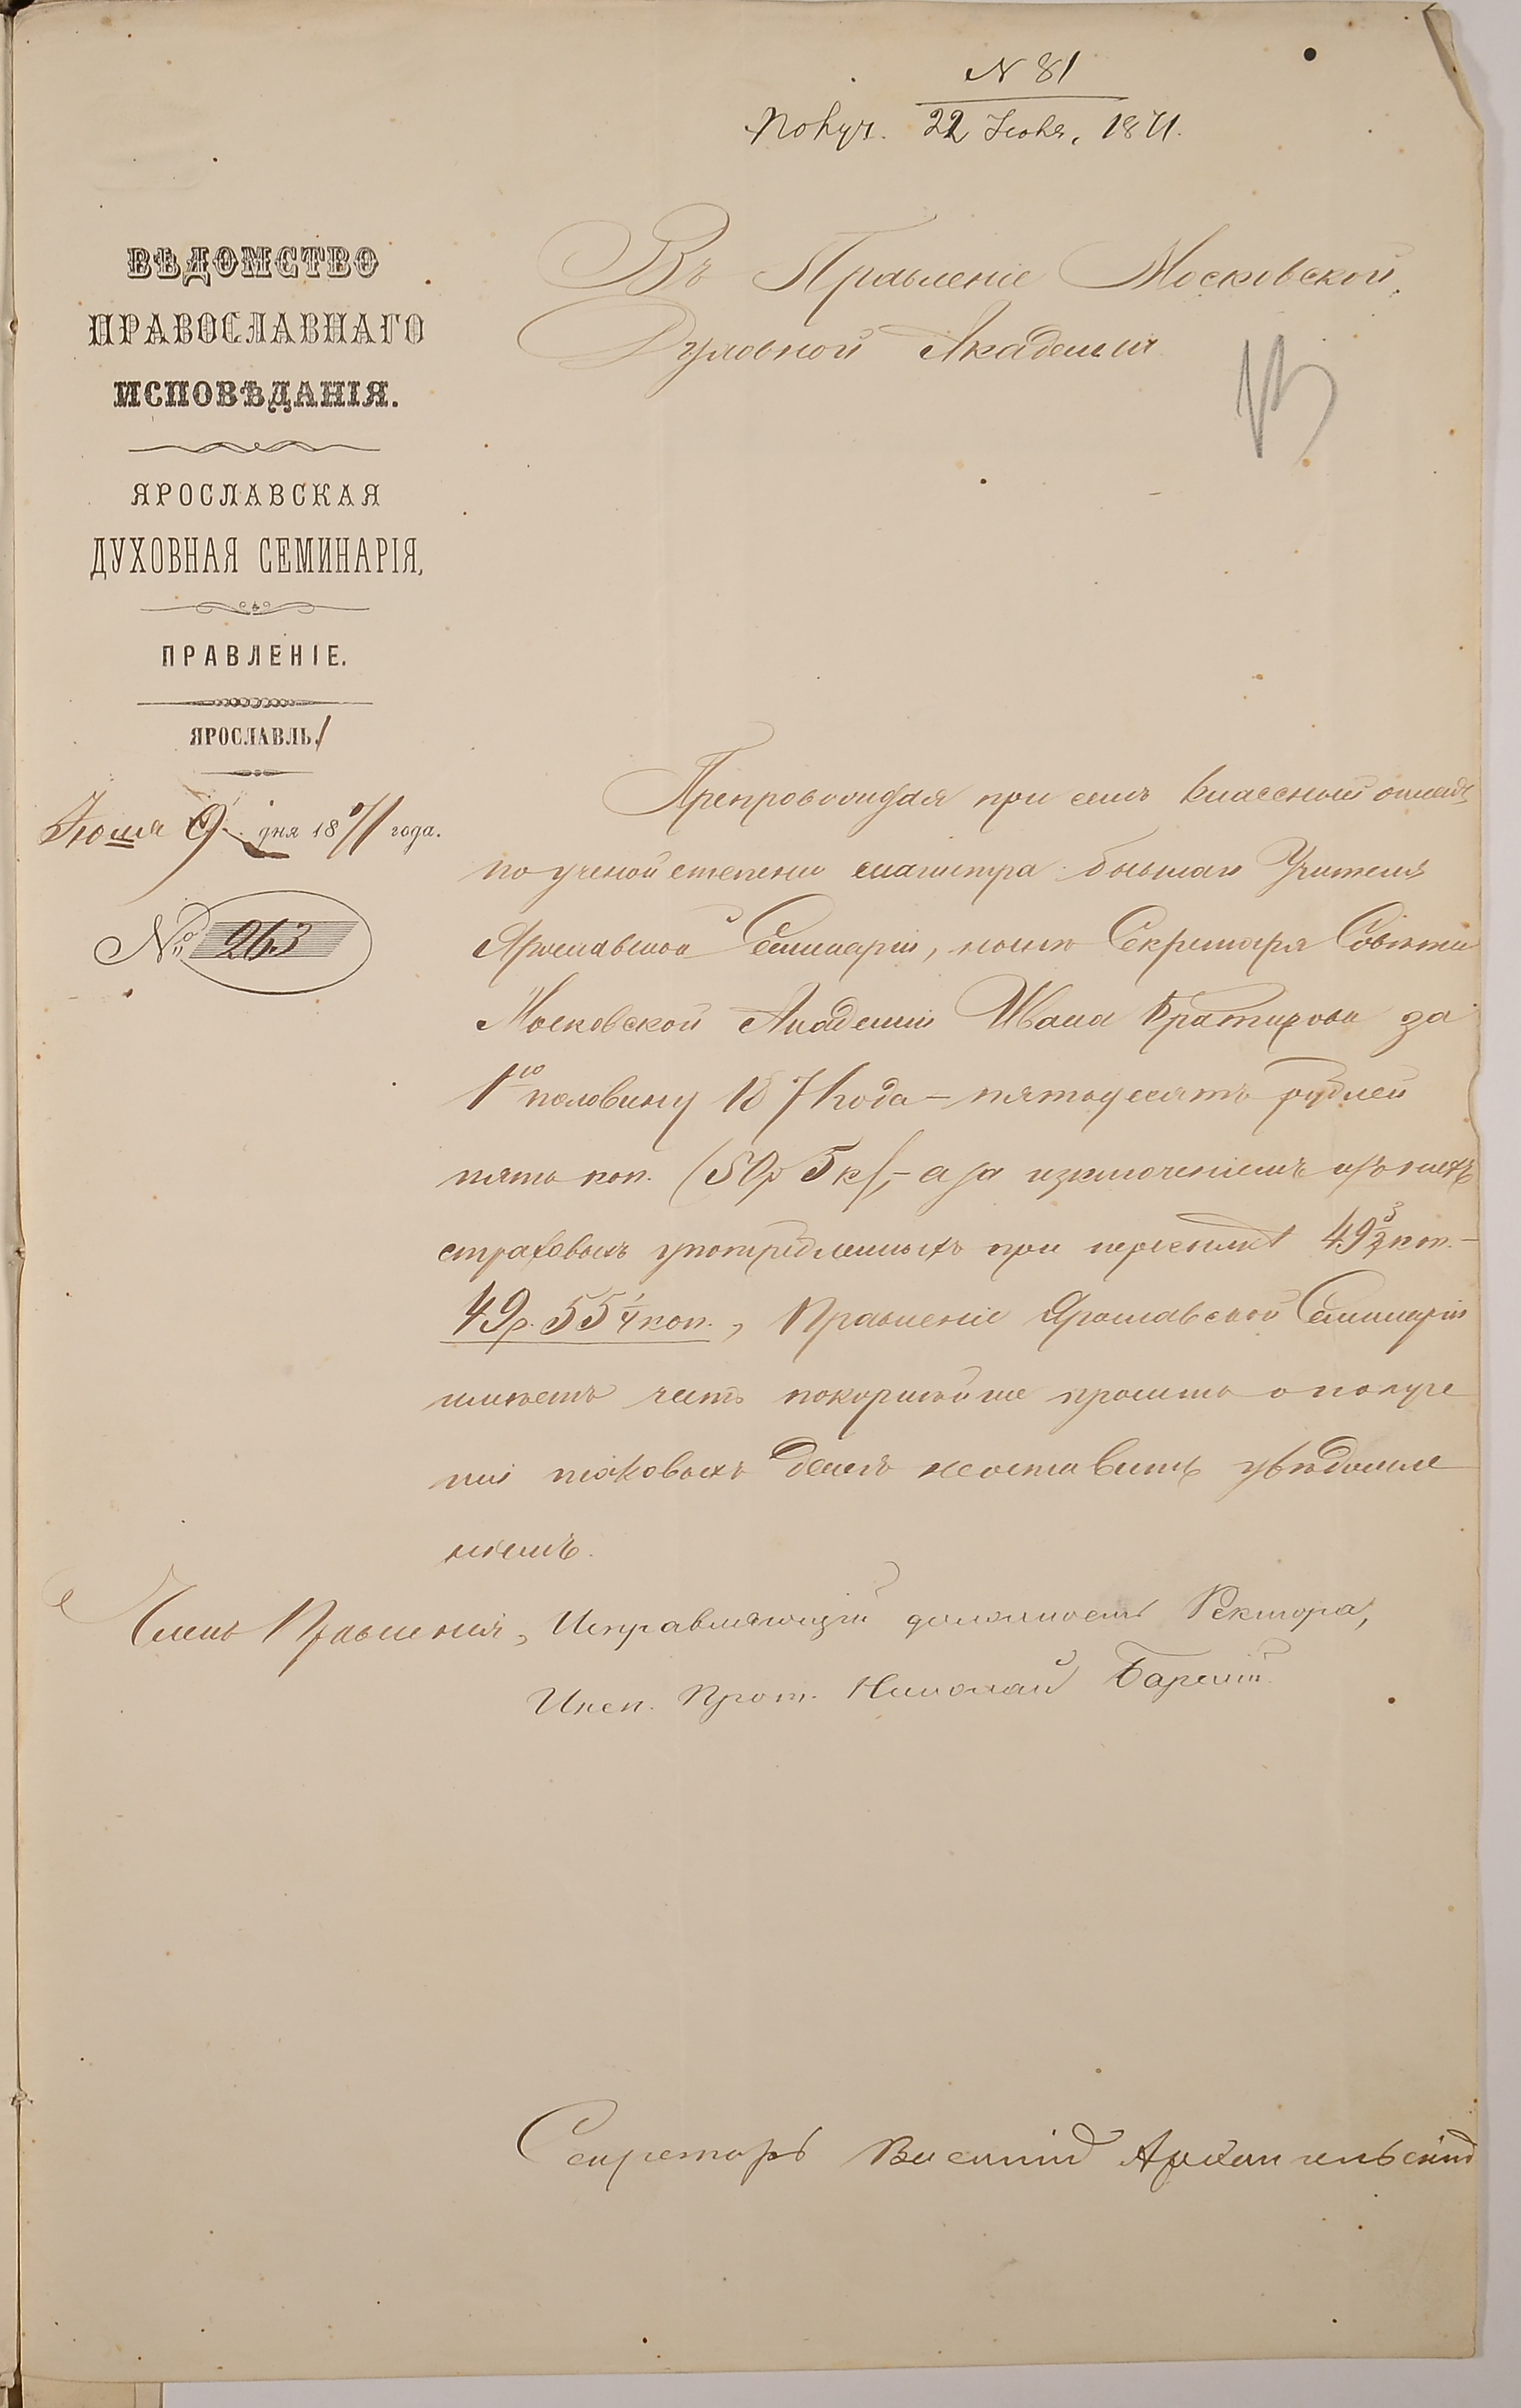 N 81
Получ. 22 Іюля, 1871.
ВѢДОМСТВО
ПРАВОСЛАВНАГО
ИСПОВѢДАНІЯ.
ЯРОСЛАВСКАЯ
ДУХОВНАЯ СЕМИНАРІЯ,
ПРАВЛЕНІЕ.
ЯРОСЛАВЛЬ.
9 дня 1871 года.
№ 263
Въ Правленіе Московской
Духовной Академіи
Препровождая при семъ классный окладъ
по ученой степени магистра бывшаго Учителя
Ярославской Семинаріи, нынѣ Секретаря Совѣта
Московской Академіи Ивана за
1ю половину 1871 года – пятьдесятъ рублей
пять коп. (50р 5к), – а за исключеніемъ изъ нихъ
страховыхъ употребленныхъ при пересылкѣ 49 3/4 коп. –
49р. 55 1/4 коп., Правленіе Ярославской Семинаріи
имѣетъ честь покорнѣйше просить о получе
ніи таковыхъ денегъ не оставить увѣдомле
ніемъ.
Членъ Правленія, Исправляющій должность Ректора,
Инсп. Прот. Николай
Секретарь Василій Архангельскій